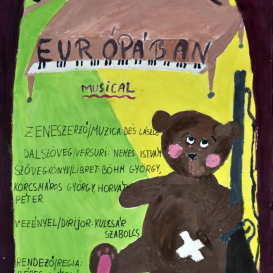 EURÓPÁBAN
MUSICAL
ZENESZERZŐ/MUZICA: DÉS LÁSZLÓ
DALSZÖVEG/VERSURI: NEMES ISTVÁN
SZÖVEGKÖNYV/LIBRET: BÖHM GYÖRGY,
KORCSMÁROS GYÖRGY, HORVÁTH
PÉTER
VEZÉNYEL/DIRIJOR: KULCSÁR
SZABOLCS
RENDEZŐ/REGIA: